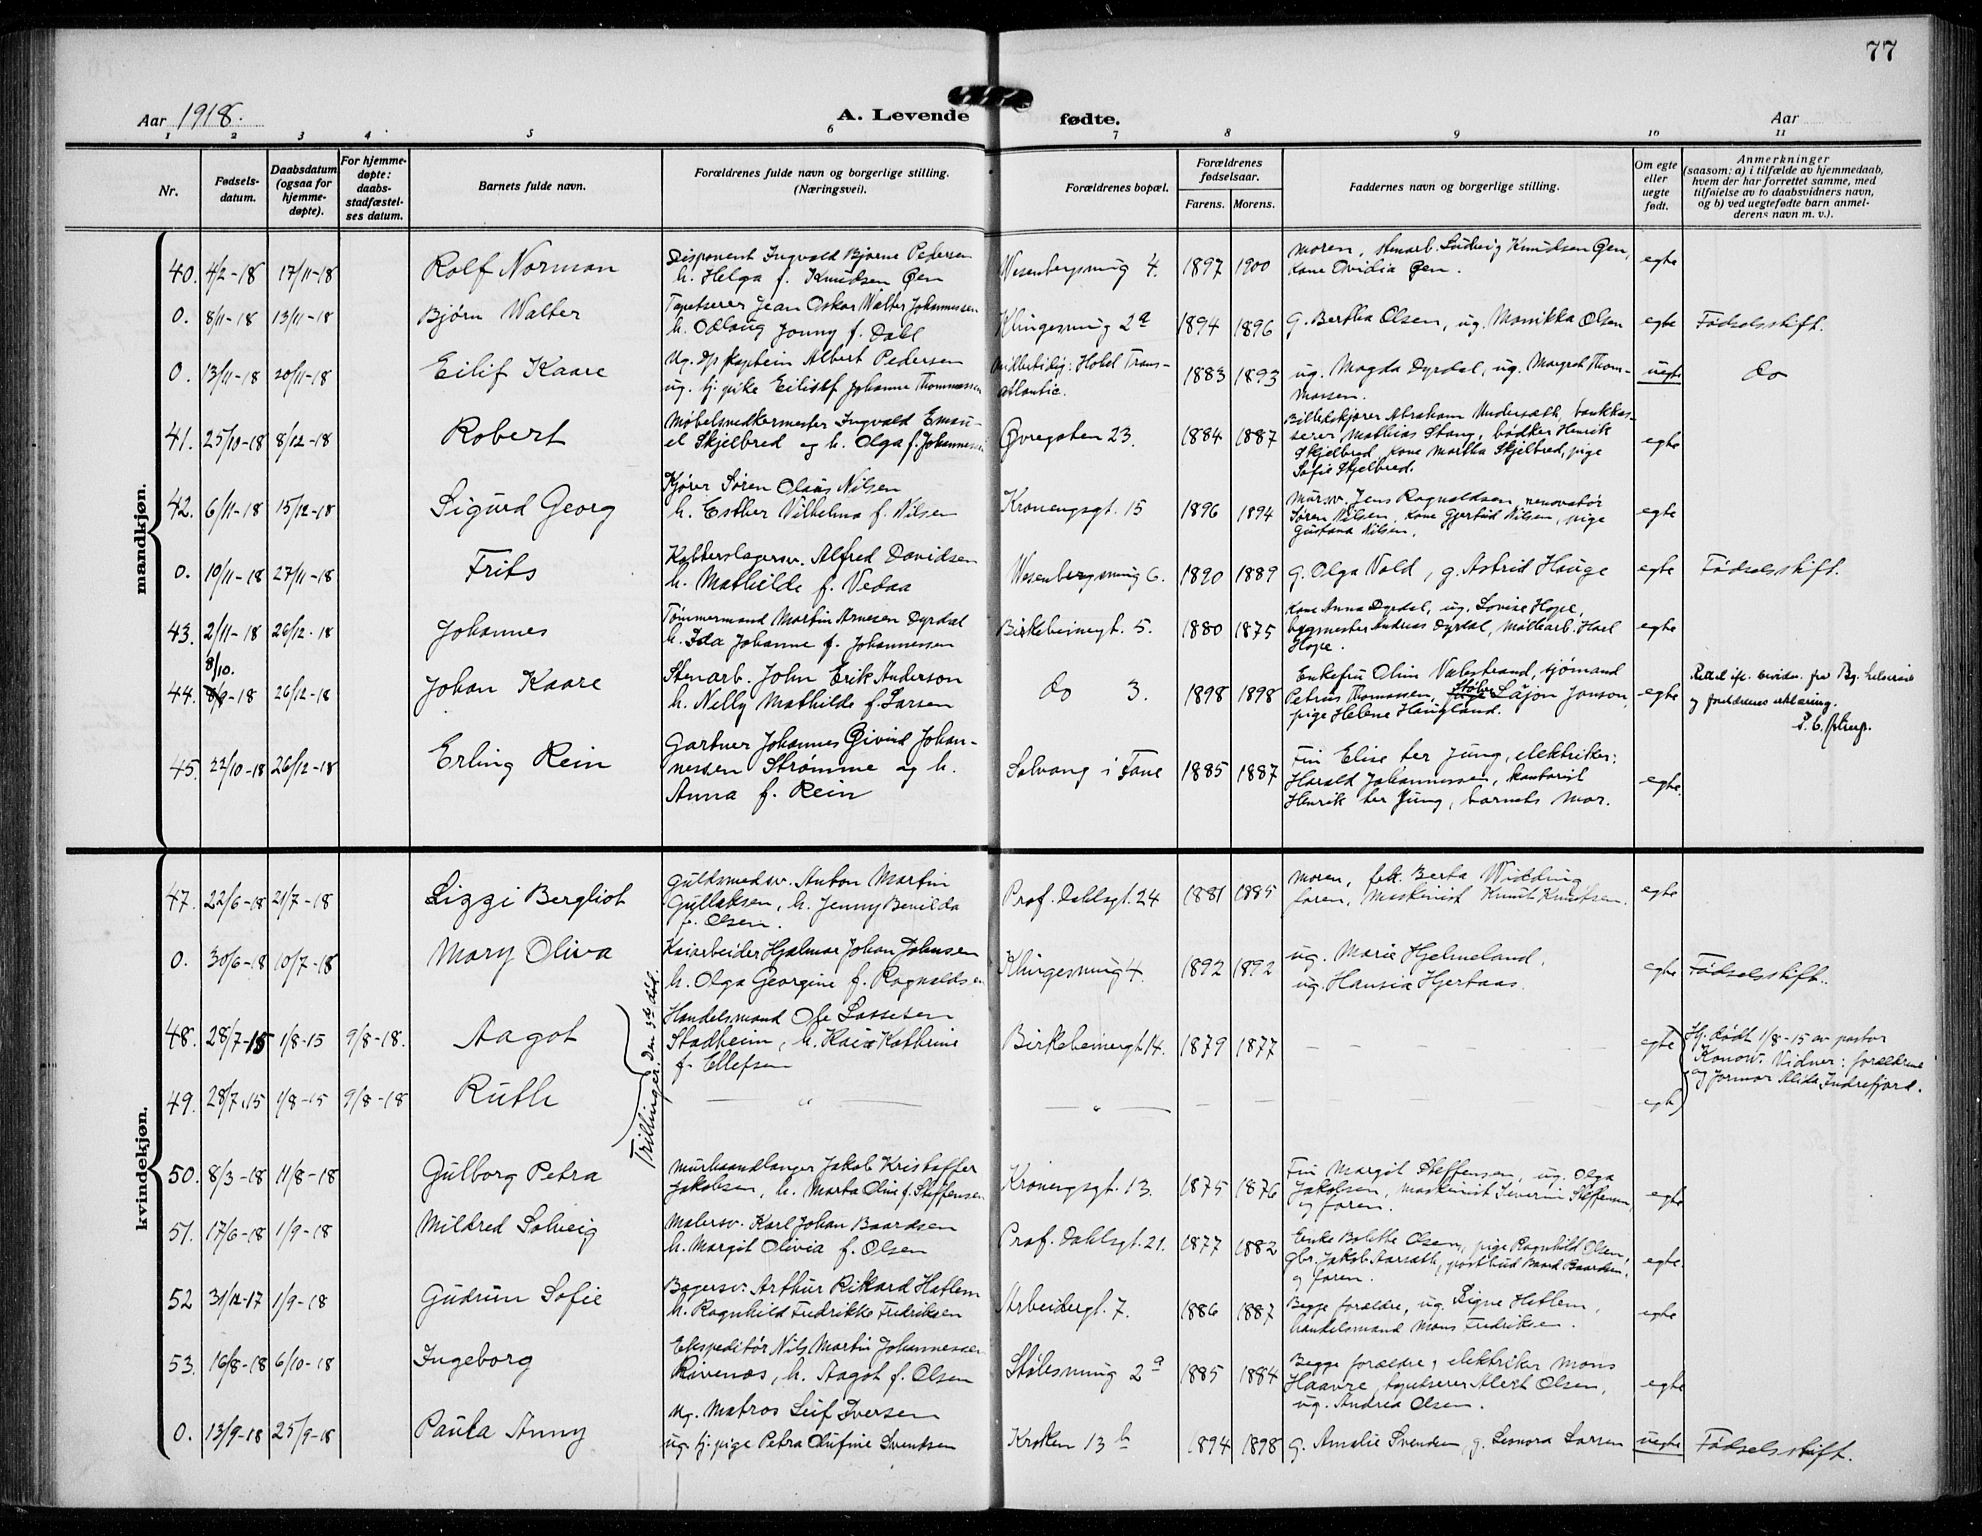 77
Aar 1918.
A. Levende fødte.
Aar
1 2 3 4 5 6 7 8 9 10 11
Nr.
Fødsels-
datum.
Daabsdatum
(ogsaa for
hjemme-
døpte).
For hjemme-
døpte:
daabs-
stadfæstel-
ses datum.
Barnets fulde navn.
Forældrenes fulde navn og borgerlige stilling.
(Næringsvei).
Forældrenes bopæl.
Forældrenes
fødselsaar.
Farens. Morens.
Faddernes navn og borgerlige stilling.
Om egte
eller
uegte
født.
Anmerkninger
(saasom: a) i tilfælde av hjemmedaab,
hvem der har forrettet samme, med
tilføielse av to daabsvidners navn,
og b) ved uegtefødte barn anmel-
derens navn m. v.).
mandkjøn.
40. 4/2-18 17/11-18 Rolf Norman
Disponent Ingvald Bjarne Pedersen
h. Helga f. Knudsen Øen
Wesenbergsmug 4. 1897 1900
Moren, stenarb. Ludvig Knudsen Øen,
Kone Ovidia Øen.
egte
0. 8/11-18 13/11-18 Bjørn Walter
Tapetserer Jean Oskar Walter Johannessen
h. Odlaug Jonny f. Dahl
Klingesmug 2a 1894 1896
G. Bertha Olsen, ug. Monikka Olsen
egte Fødselsstift.
0. 13/11-18 20/11-18 Eilif Kaare
Ug. Dpskaptein Albert Pedersen
ug. tj. pike Eilistf Johanne Thommassen
Midlertidig: Hotel Trans-
atlantic.
1883 1893
ug. Magda Dyrdal, ug. Margret Thom-
massen.
uegte do
41. 25/10-18 8/12-18 Robert
Møbelsnedkermester Ingvald Emanu-
el Skjelbred og h. Olga f. Johannessen
Øvregaten 23. 1884 1887
Bilkjører Abraham Undersæth, bankkas-
serer Mathias Stang, bødker Henrik
Skjelbred, kone Martha Skjelbred, pige
Sofie Skjelbred.
egte
42. 6/11-18 15/12-18 Sigurd Georg
Kjører Søren Olaus Nilsen
h. Esther Vilhelma f. Nilsen
Kronengsgt. 15 1896 1894
Mursv. Jens Ragnaldsen, renovatør
Søren Nilsen, kone Gjertrud Nilsen, pige
Gustava Nilsen.
egte
0. 19/11-18 27/11-18 Frits
Kobberslagersv. Alfred Davidsen
h. Mathilde f. Vedaa
Wesenbergsmug 6. 1890 1889
G. Olga Vold, g. Astrid Hauge
egte Fødselsstift.
43. 2/11-18 26/12-18 Johannes
Tømmermand Martin Arnesen Dyrdal
h. Ida Johanne f. Johannessen
Birkebeinergt. 5. 1880 1875
Kone Anna Dyrdal, ug. Lovise Hope,
bygmester Andreas Dyrdal, møllearb. Karl
Hope.
egte
8/10.
44. 8/9-18 26/12-18 Johan Kaare
Stenarb. John Erik Anderson
h. Nelly Mathilde f. Larsen
do 3. 1898 1898
Enkefru Olina Valestrand, sjømand
Petrus Thomassen, Låjon Jonson,
pige Helene Haugland.
egte
og forældrenes erklæring.
45. 22/10-18 26/12-18 Erling Rein
Gartner Johannes Øivind Johan-
nessen Strømme og h.
Anna f. Rein
Solvang i Fane 1885 1887
Fru Elise ter Jung, elektriker:
Harald Johannessen, kontorist
Henrik ter Jung, barnets mor.
egte.
kvindekjøn.
47. 22/6-18 21/7-18 Lizzi Bergliot
Guldsmedsv. Anton Martin
Gullaksen, h. Jenny Benilda
f. Olsen.
Prof. Dahlsgt. 24 1881 1885
Moren, frk. Berta Widding
faren, Maskinist Knut Knudsen.
egte
0. 30/6-18 10/7-18 Mary Oliva
Kaiarbeider Hjalmar Johan Johnsen
h. Olga Georgine f. Ragnaldsen
Klingesmug 4. 1892 1892
ug. Marie Hjelmeland.
ug. Hansia Hjertaas.
egte Fødselsstift.
Trillinger. Den 3die død.
48. 28/7-15 1/8-15 9/8-18. Aagot
Handelsmand Ole Lassesen
Stadheim, h. Kaia Kathrine
f. Ellefsen
Birkebeinergt. 14. 1879 1877 — — — — —
egte
Hj. døbt 1/8-15 av pastor
Konow. Vidner: forældrene
og jormor Alida Indrefjord.
49. 28/7.15 1/8-15 9/8-18 Ruth
— " — — " — — — — — —
egte
50. 8/3-18 11/8-18 Gulborg Petra
Murhaandlanger Jakob Kristoffer
Jakobsen, h. Marta Oline f. Steffensen
Kronengsgt. 13. 1875 1876
Fru Margit Steffensen, ug. Olga
Jakobsen, maskinist Severin Steffensen
og faren.
egte
51. 17/6-18 1/9-18 Mildred Solveig
Malersv. Karl Johan Baardsen
h. Margit Olivia f. Olsen
Prof. Dahlsgt. 21. 1877 1882
Enke Bolette Olsen, pige Ragnhild Olsen,
gbr. Jakob Aarsæth, postbud Baard Baardsen,
og faren.
egte.
52 31/12-17 1/9-18 Gudrun Sofie
Bagersv. Arthur Rikkard Hatlem
h. Ragnhild Fredrikke Fredriksen
Arbeidergt. 7. 1886 1887
Begge forældre, ug. Signe Hatlem,
handelsmand Mons Fredriksen.
egte
53. 16/8-18 6/10-18 Ingeborg
Ekspeditør Nils Martin Johannessen
Rivenes, h. Aagot f. Olsen
Stølesmug 2a 1885 1884
Begge forældre, elektriker Mons
Haavre, tapetserer Alert Olsen,
ug. Andrea Olsen.
egte
0. 13/9-18 25/9-18 Paula Anny
Ug. Matros Leif Iversen
ug. tj. pige Petra Olufine Svendsen
Kroken 13 b 1894 1898
G. Amalie Svendsen, g. Leonora Larsen
uegte Fødselsstift.